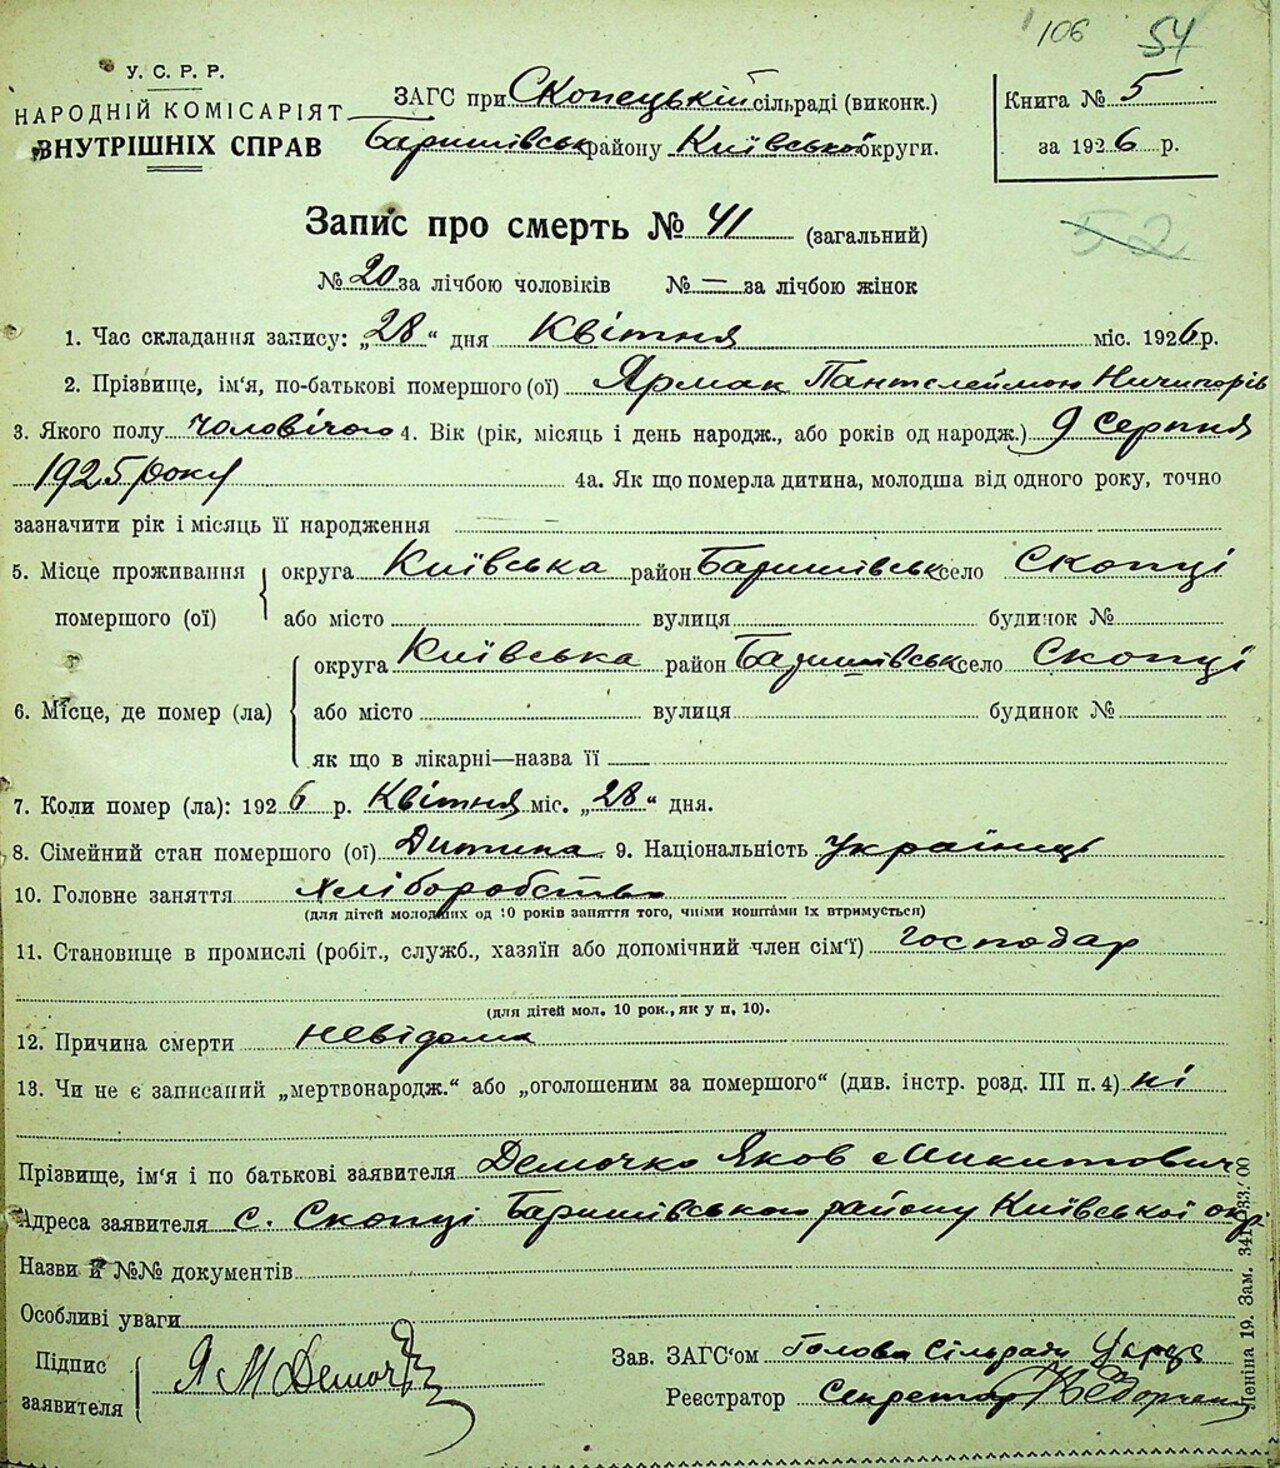 106 54
У. С. Р. Р.
НАРОДНІЙ КОМІСАРІЯТ
ВНУТРІШНІХ СПРАВ
ЗАГС при Скопецькій сільраді (виконк.)
Баришівськ району Київської округи.
Книга № 5
за 1926 р.
52
Запис про смерть № 41 (загальний)
№ 20 за лічбою чоловіків № — за лічбою жінок
1. Час складання запису: „28“ дня Квітня міс. 1926 р.
2. Прізвище, ім‘я, по-батькові помершого (ої) Ярмак Пантелеймон Ничипорів
3. Якого полу чоловічого 4. Вік (рік, місяць і день народж., або років од народж.) 9 Серпня
1925 року 4а. Як що померла дитина, молодша від одного року, точно
зазначити рік і місяць її народження —
5. Місце проживання помершого (ої) округа Київська район Баришівськ село Скопці
або місто вулиця будинок №
6. Місце, де помер (ла) округа Київська район Баришівськ село Скопці
або місто вулиця будинок №
як що в лікарні—назва її
7. Коли помер (ла): 1926 р. Квітня міс. „28“ дня.
8. Сімейний стан помершого (ої) Дитина 9. Національність Українець
10. Головне заняття хліборобство
(для дітей молодших од 10 років заняття того, чиїми коштами їх втримується)
11. Становище в промислі (робіт., служб., хазяїн або допомічний член сім‘ї) господар
(для дітей мол. 10 рок., як у п, 10).
12. Причина смерти невідома
13. Чи не є записаний „мертвонародж.“ або „оголошеним за помершого“ (див. інстр. розд. III п. 4) ні
Прізвище, ім‘я і по батькові заявителя Демочко Яков Микитович
Адреса заявителя с. Скопці Баришівського району Київської окр.
Назви й №№ документів
Особливі уваги
Підпис заявителя Я М Демочко
Зав. ЗАГС‘ом Голова Сільради
Реєстратор Секретар
Леніна 19. Зам. 341